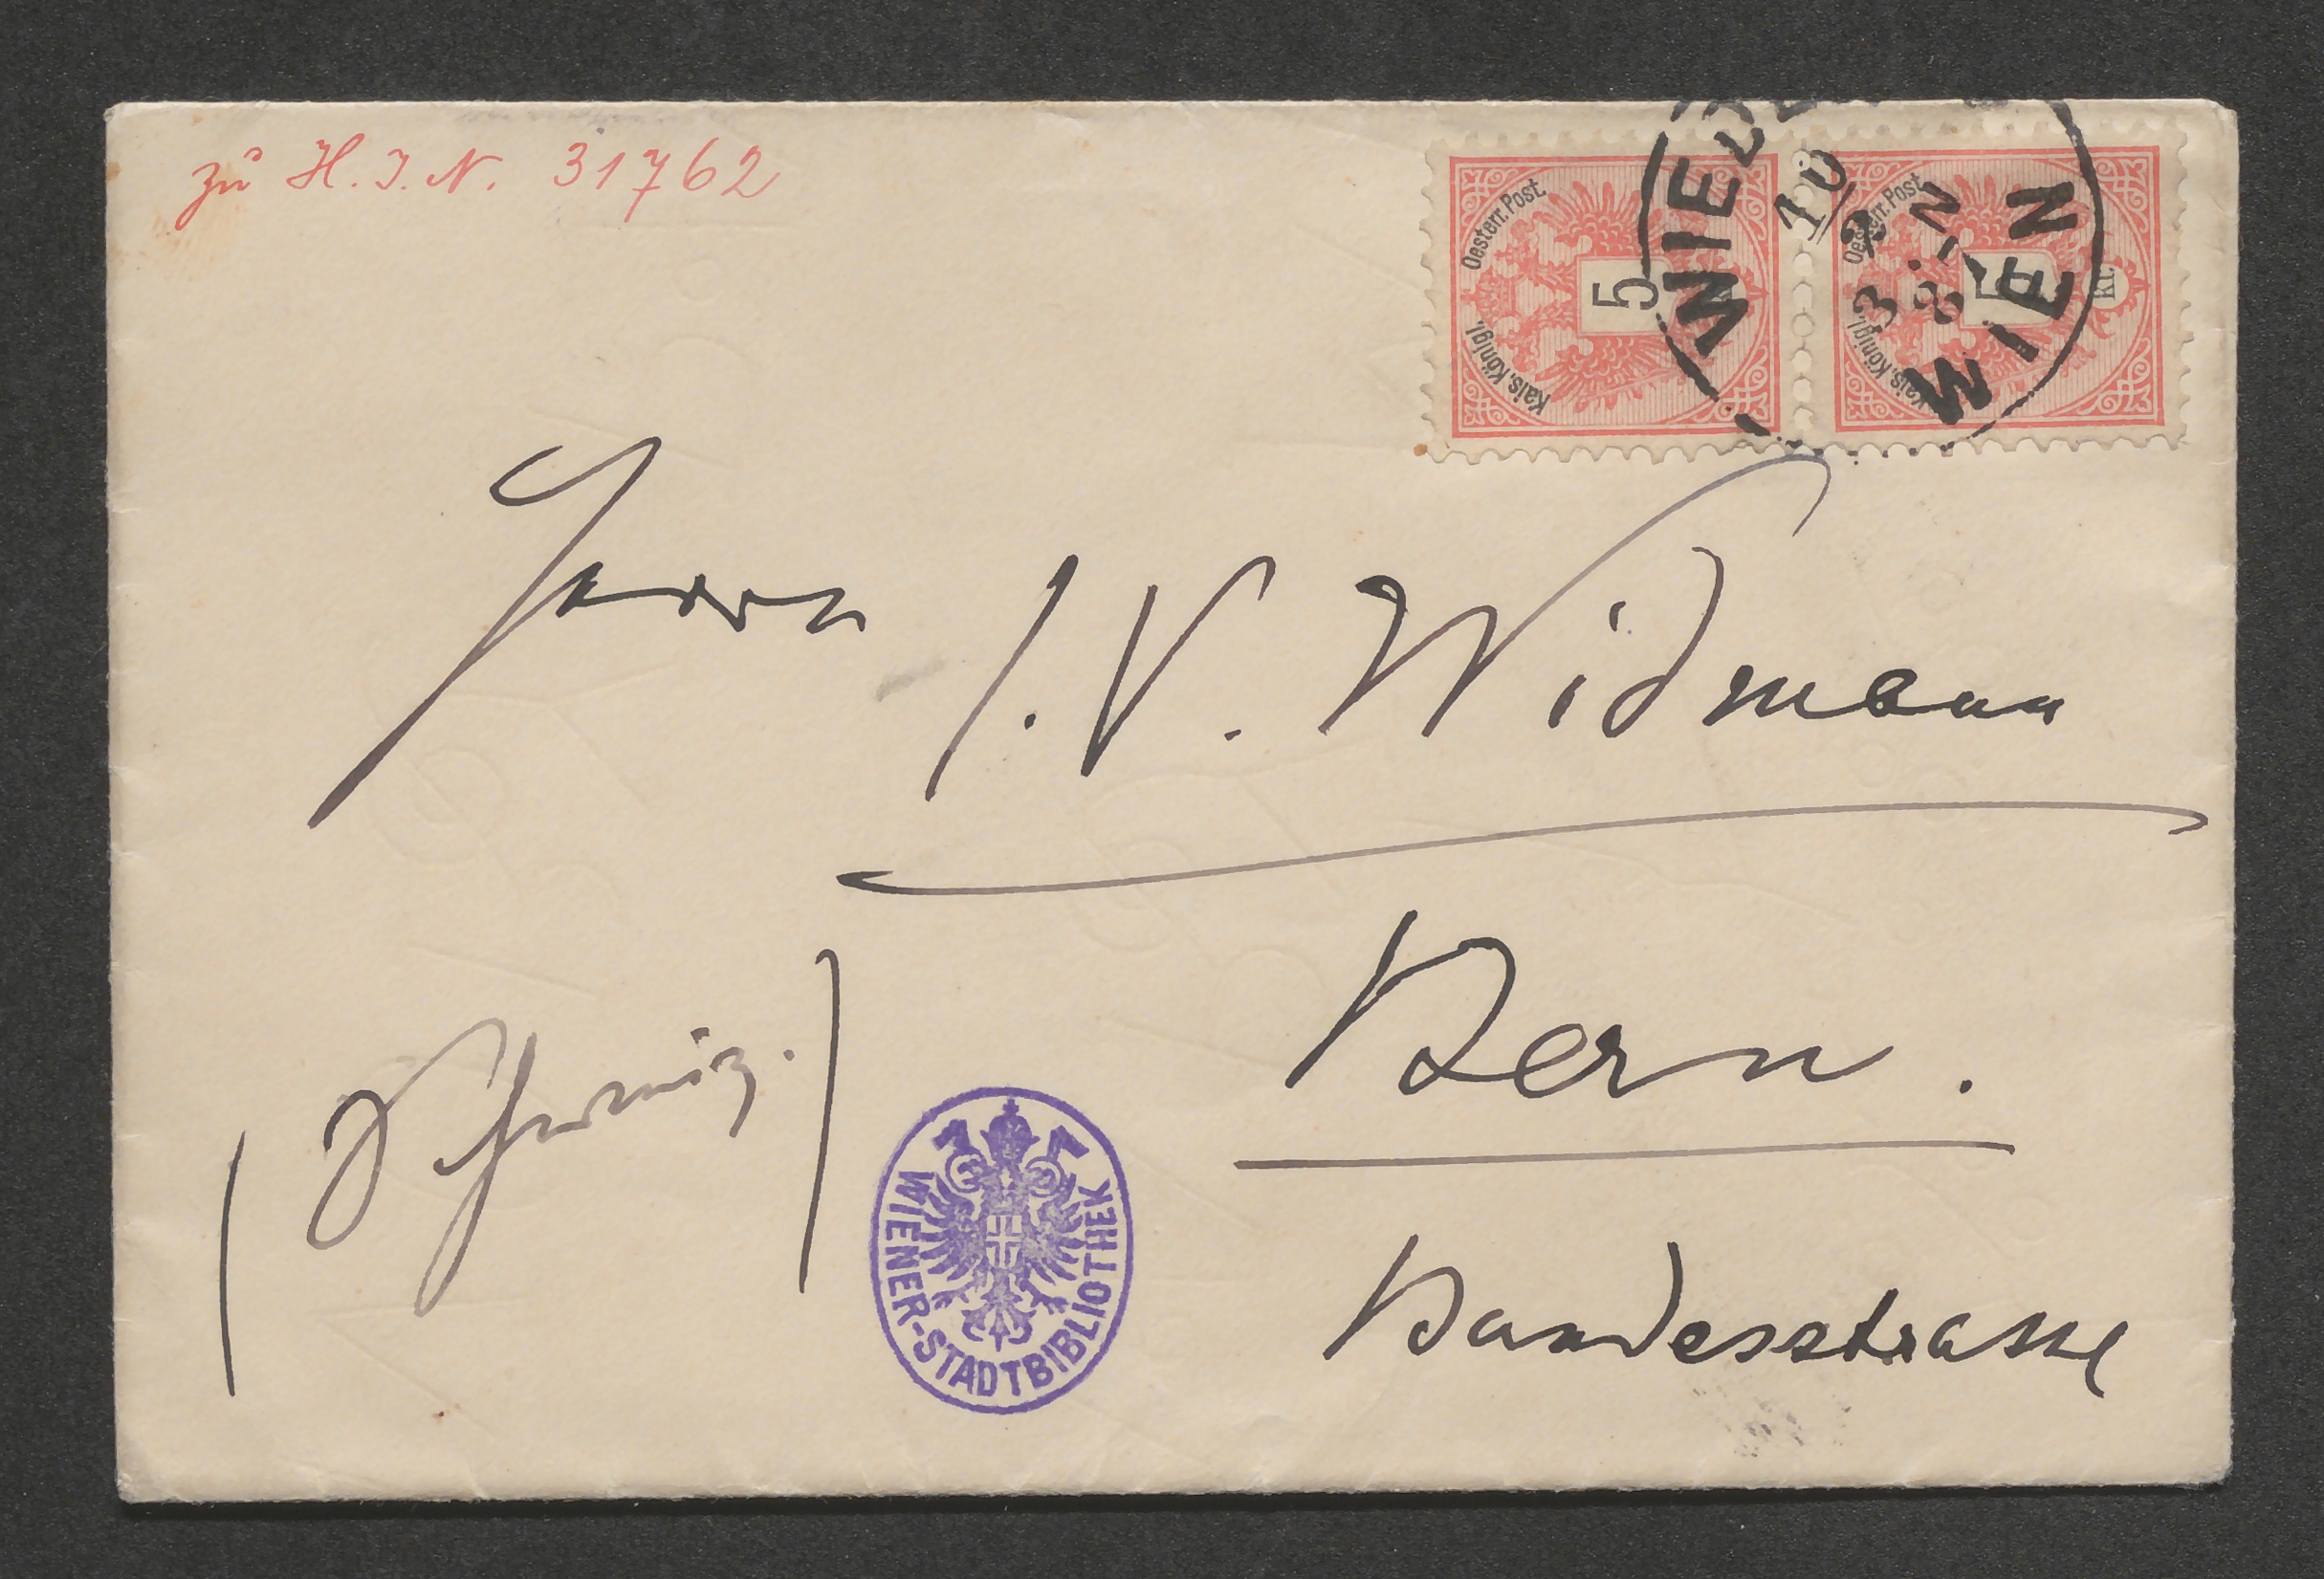 zu H. I. N. 31762
Kais. Königl. Oesterr. Post
5
Kais. Königl. Oesterr. Post
5 kr.
WIEDEN
WIEN
10
3
8-N
Herrn J. V. Widmann
Bern.
(Schweiz.)
Bundesstrasse
WIENER-STADTBIBLIOTHEK